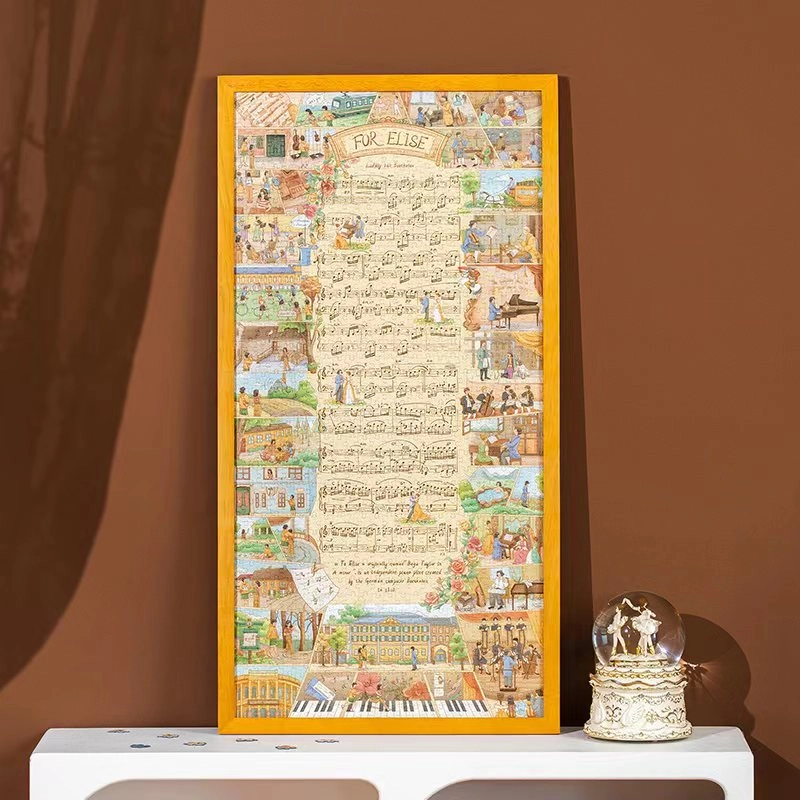 FUR ELISE
Ludwig van Beethoven
Fu Elise
originally named
A minor", is an independent piano piece created
by the German composer Beethoven
in 1810